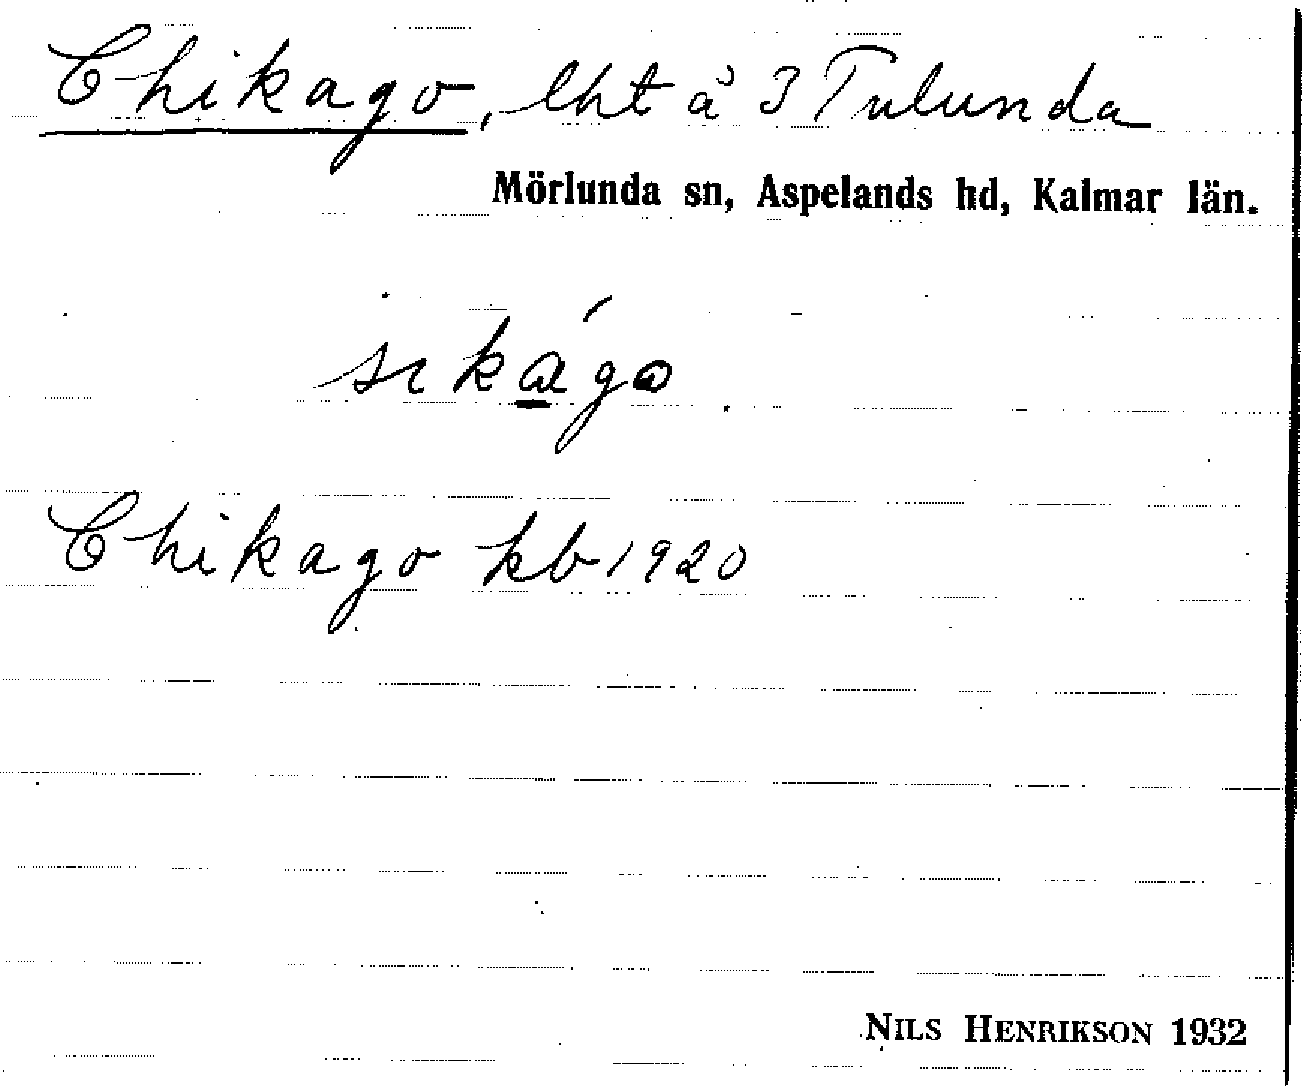 Chikago, lht å 3 Tulunda
Mörlunda sn, Aspelands hd, Kalmar län.
sikágo
Chikago kb 1920
NILS HENRIKSON 1932